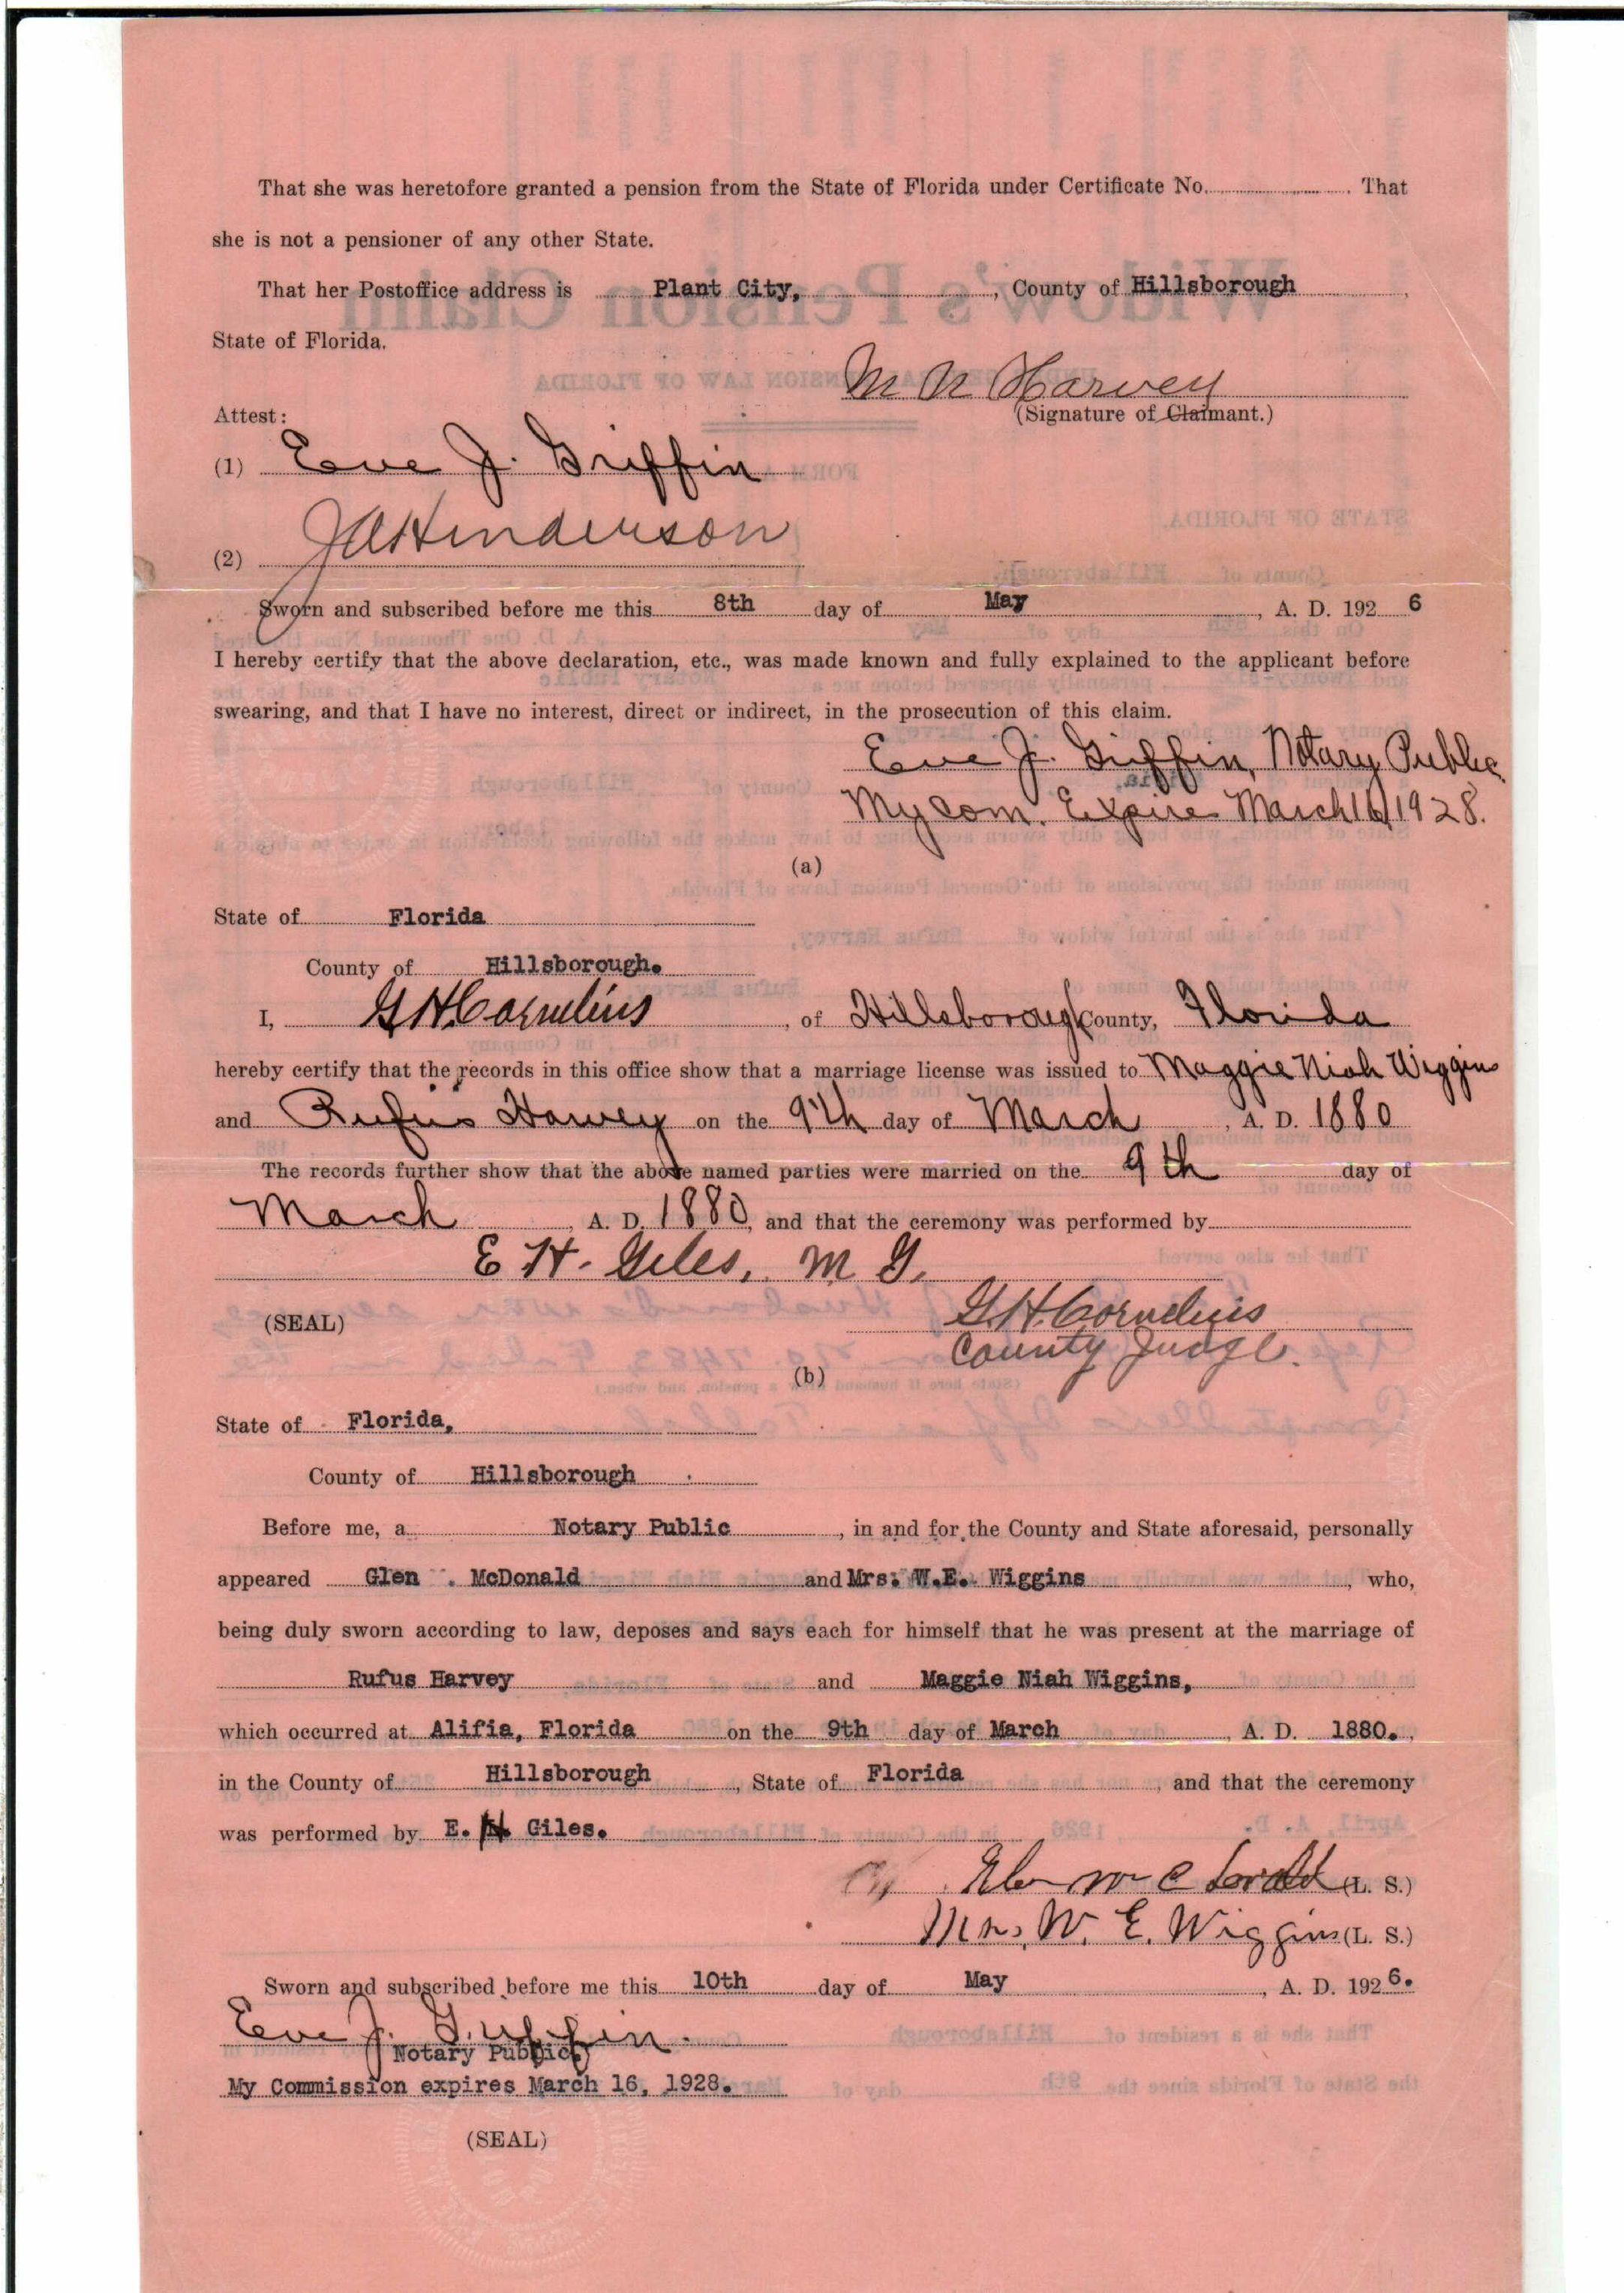 That she was heretofore granted a pension from the State of Florida under Certificate No. . That
she is not a pensioner of any other State.
That her Postoffice address is Plant City, , County of Hillsborough ,
State of Florida.
M N Harvey
Attest: (Signature of Claimant.)
(1) Eve J. Griffin
(2) J A Henderson
Sworn and subscribed before me this 8th day of May , A. D. 192 6
I hereby certify that the above declaration, etc., was made known and fully explained to the applicant before
swearing, and that I have no interest, direct or indirect, in the prosecution of this claim.
Eve J. Griffin, Notary Public
My Com. Expire March 16 1928.
(a)
State of Florida
County of Hillsborough.
I, G H Cornelius , of Hillsborough County, Florida
hereby certify that the records in this office show that a marriage license was issued to Maggie Niah Wiggins
and Rufus Harvey on the 9th day of March , A. D. 1880
The records further show that the above named parties were married on the 9th day of
March , A. D. 1880, and that the ceremony was performed by
E H. Giles, M G.
(SEAL) G. H. Cornelius
County Judge.
(b)
State of Florida,
County of Hillsborough .
Before me, a Notary Public , in and for the County and State aforesaid, personally
appeared Glen . McDonald and Mrs. W.E. Wiggins , who,
being duly sworn according to law, deposes and says each for himself that he was present at the marriage of
Rufus Harvey and Maggie Niah Wiggins,
which occurred at Alifia, Florida on the 9th day of March , A. D. 1880. ,
in the County of Hillsborough , State of Florida , and that the ceremony
was performed by E. H. Giles.
Glen McDonald (L. S.)
Mrs. W. E. Wiggins (L. S.)
Sworn and subscribed before me this 10th day of May , A. D. 192 6.
Eve J. Griffin.
Notary Public
My Commission expires March 16, 1928.
(SEAL)